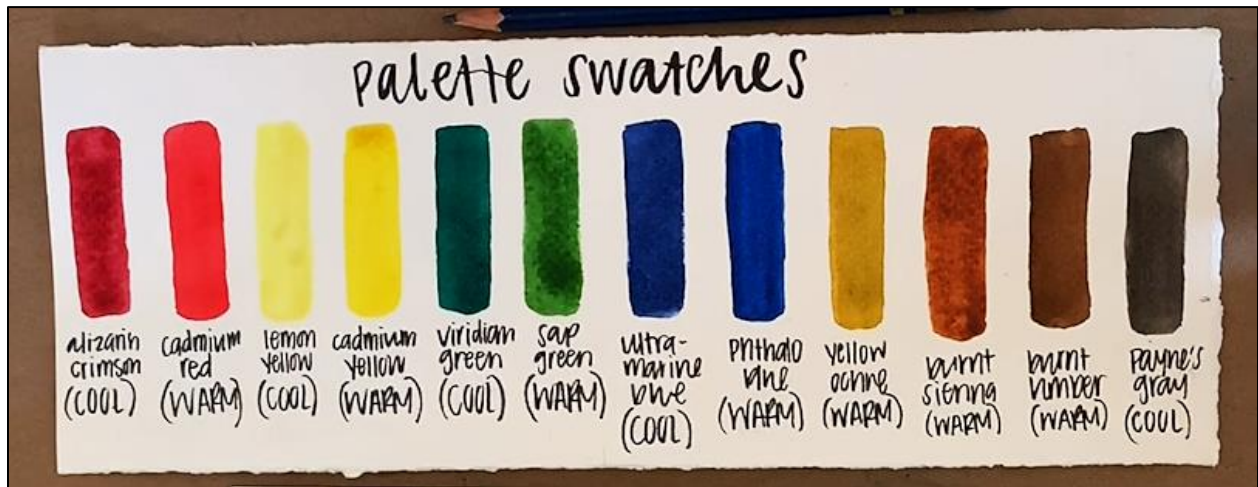 palette swatches
alizarin
crimson
(COOL)
cadmium
red
(WARM)
lemon
yellow
(COOL)
cadmium
yellow
(WARM)
viridian
green
(COOL)
sap
green
(WARM)
ultra-
marine
blue
(COOL)
phthalo
blue
(WARM)
yellow
ochre
(WARM)
burnt
sienna
(WARM)
burnt
umber
(WARM)
payne's
gray
(COOL)